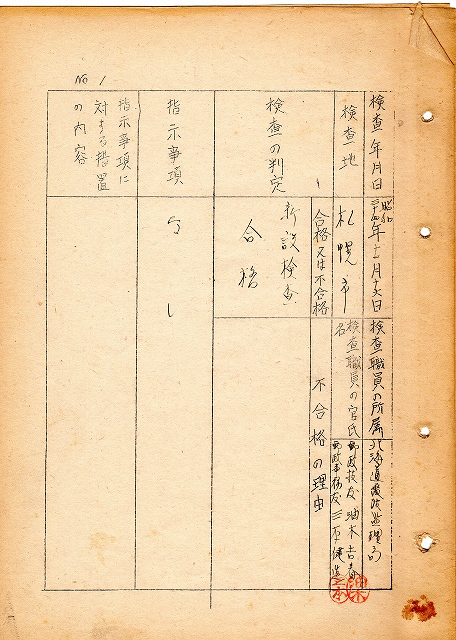 No 1
検査年月日
昭和
三十四年十二月十六日
検査職員の所属
北海道電波監理局
検査地
札幌市
検査職員の官氏名
郵政技官
郵政事務官 三
検査の判定
合格又は不合格
新設検査
合格
不合格の理由
指示事項
なし
指示事項に
対する措置
の内容